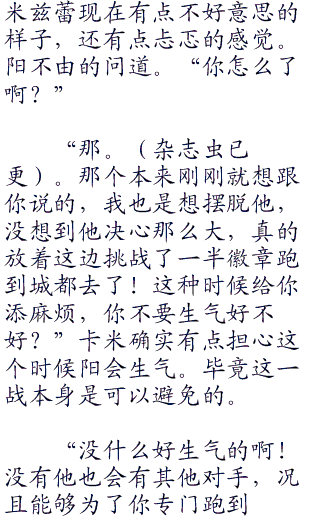 米兹蕾现在有点不好意思的
样子，还有点忐忑的感觉。
阳不由的问道。“你怎么了
啊？”
“那。（杂志虫已
更）。那个本来刚刚就想跟
你说的，我也是想摆脱他，
没想到他决心那么大，真的
放着这边挑战了一半徽章跑
到城都去了！这种时候给你
添麻烦，你不要生气好不
好？”卡米确实有点担心这
个时候阳会生气。毕竟这一
战本身是可以避免的。
“没什么好生气的啊！
没有他也会有其他对手，况
且能够为了你专门跑到